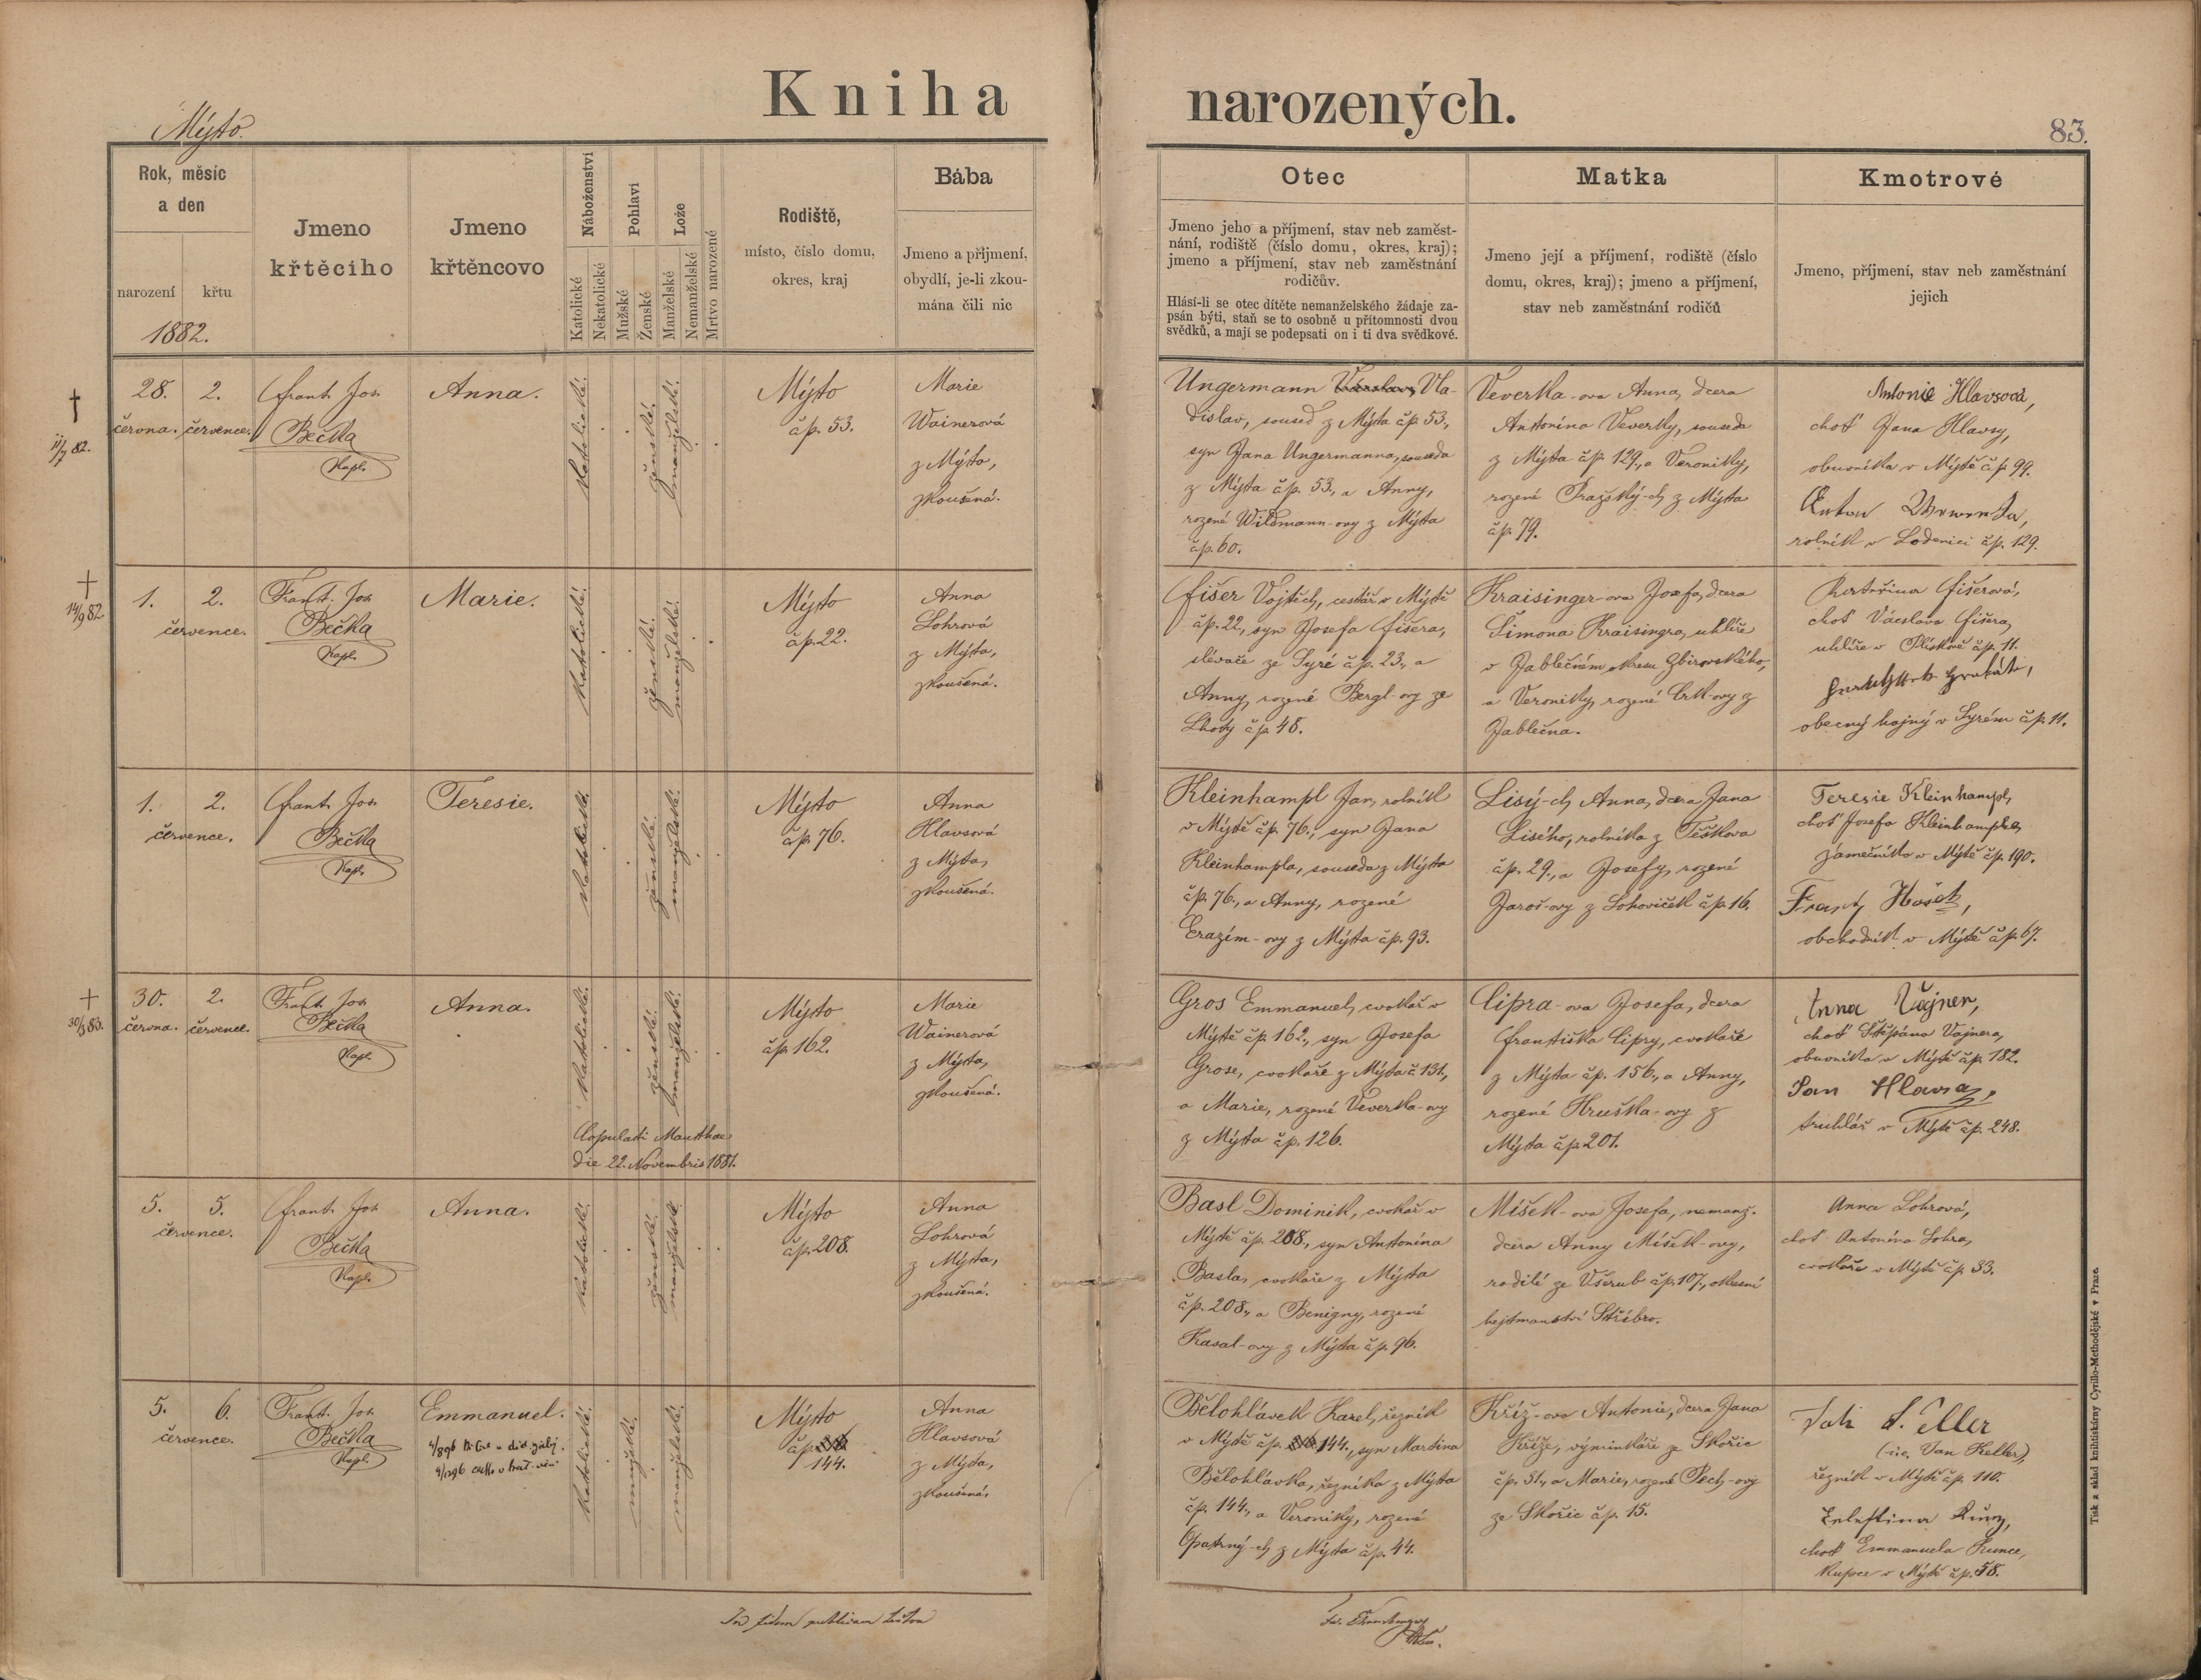 Kniha narozených.
Mýto.
83.
Rok, měsíc
a den
narození
křtu
1882.
Jmeno
křtěcího
Jmeno
křtěncovo
Náboženství
Katolické
Nekatolické
Pohlaví
Mužské
Ženské
Lože
Manželské
Nemanželské
Mrtvo narozené
Rodiště,
místo, číslo domu,
okres, kraj
Bába
Jmeno a příjmení,
obydlí, je-li zkou-
mána čili nic
Otec
Jmeno jeho a příjmení, stav neb zaměst-
nání, rodiště (číslo domu, okres, kraj);
jmeno a příjmení, stav neb zaměstnání
rodičův.
Hlásí-li se otec dítěte nemanželského žádaje za-
psán býti, staň se to osobně u přítomnosti dvou
svědků, a mají se podepsati on i ti dva svědkové.
Matka
Jmeno její a příjmení, rodiště (číslo
domu, okres, kraj); jmeno a příjmení,
stav neb zaměstnání rodičů
Kmotrové
Jmeno, příjmení, stav neb zaměstnání
jejich
† 11/7 82.
28. 2.
června. července.
Frant. Jos.
Bečka
Kapl.
Anna.
katolické.
ženské.
manželské.
Mýto
čp. 53.
Marie
Wainerová
z Mýta,
zkoušená.
Ungermann Vla-
dislav, soused z Mýta čp. 53.,
syn Jana Ungermanna, souseda
z Mýta čp. 53., a Anny,
rozené Wildmann-ovy z Mýta
čp. 60.
Veverka-ova Anna, dcera
Antonína Veverky, souseda
z Mýta čp. 129., a Veroniky,
rozené Pražský-ch z Mýta
čp. 79.
Antonie Hlavsová,
choť Jana Hlavsy,
obuvníka v Mýtě čp. 99.
Anton Wewerka,
rolník v Lodenici čp. 129.
† 14/9 82
1. 2.
července.
Frant. Jos.
Bečka
Kapl.
Marie.
katolické.
ženské.
manželské.
Mýto
čp. 22.
Anna
Lohrová
z Mýta,
zkoušená.
Fišer Vojtěch, cestář v Mýtě
čp. 22., syn Josefa Fišera,
slévače ze Syré čp. 23., a
Anny, rozené Bergl-ovy ze
Lhoty čp. 48.
Kraisingr-ova Josefa, dcera
Šimona Kraisingra, uhlíře
v Jablečném okresu Zbirovského,
a Veroniky, rozené Crk-ovy z
Jablečna.
Kateřina Fišerová,
choť Václava Fišera,
uhlíře v Plískově čp. 11.
obecný hajný v Syrém čp. 11.
1. 2.
července.
Frant. Jos.
Bečka
Kapl.
Teresie.
katolické.
ženské.
manželské.
Mýto
čp. 76.
Anna
Hlavsová
z Mýta,
zkoušená.
Kleinhampl Jan, rolník
v Mýtě čp. 76., syn Jana
Kleinhampla, souseda z Mýta
čp. 76., a Anny, rozené
Erazím-ovy z Mýta čp. 93.
Lisý-ch Anna, dcera Jana
Lisého, rolníka z Těškova
čp. 29., a Josefy, rozené
Jaroš-ovy z Lohoviček čp. 16.
Teresie Kleinhampl,
choť Josefa Kleinhampla,
zámečníka v Mýtě čp. 190.
Hošek,
obchodník v Mýtě čp. 67.
† 30/3 83.
30. 2.
června. července.
Frant. Jos.
Bečka
Kapl.
Anna.
katolické.
ženské.
manželské.
Copulati Mauthae
die 22. Novembris 1881.
Mýto
čp. 162.
Marie
Wainerová
z Mýta,
zkoušená.
Gros Emmanuel, cvokař v
Mýtě čp. 162., syn Josefa
Grose, cvokaře z Mýta č. 131.,
a Marie, rozené Veverka-ovy
z Mýta čp. 126.
Cipra-ova Josefa, dcera
Františka Cipry, cvokaře
z Mýta čp. 156., a Anny,
rozené Hruška-ovy z
Mýta čp. 201.
Anna Vajner,
choť Štěpána Vajnera,
obuvníka v Mýtě čp. 182.
Jan Hlava,
truhlář v Mýtě čp. 248.
5. 5.
července.
Frant. Jos.
Bečka
Kapl.
Anna.
katolické.
ženské.
manželské.
Mýto
čp. 208.
Anna
Lohrová
z Mýta,
zkoušená.
Basl Dominik, cvokař v
Mýtě čp. 208., syn Antonína
Basla, cvokaře z Mýta
čp. 208., a Benigny, rozené
Kasal-ovy z Mýta čp. 96.
Míšek-ova Josefa, nemanž.
dcera Anny Míšek-ovy,
rodilé ze Všerub čp. 107., okresní
hejtmanství Stříbro.
Anna Lohrová,
choť Antonína Lohra,
cvokaře v Mýtě čp. 33.
5. 6.
července.
Frant. Jos.
Bečka
Kapl.
Emmanuel.
katolické.
mužské.
manželské.
Mýto
čp.
144.
Anna
Hlavsová
z Mýta,
zkoušená.
Bělohlávek Karel, řezník
v Mýtě čp. 144., syn Martina
Bělohlávka, řezníka z Mýta
čp. 144., a Veroniky, rozené
Opatrný-ch z Mýta čp. 44.
Kříž-ova Antonie, dcera Jana
Kříže, výminkáře ze Skořic
čp. 31., a Marie, rozené Pech-ovy
ze Skořic čp. 15.
(i.e. Jan Keller),
řezník v Mýtě čp. 110.
Celestina Kunz,
choť Emmanuela Kunce,
kupce v Mýtě čp. 58.
In fidem publicam
Tisk a sklad knihtiskárny Cyrillo-Methodějské v Praze.